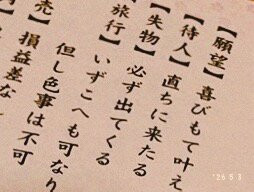 【願望】喜びもて叶え
【待人】直ちに来たる
【失物】必ず出てくる
【旅行】いずこへも可なり
但し色事は不可
売】損益差な
'26 5 3